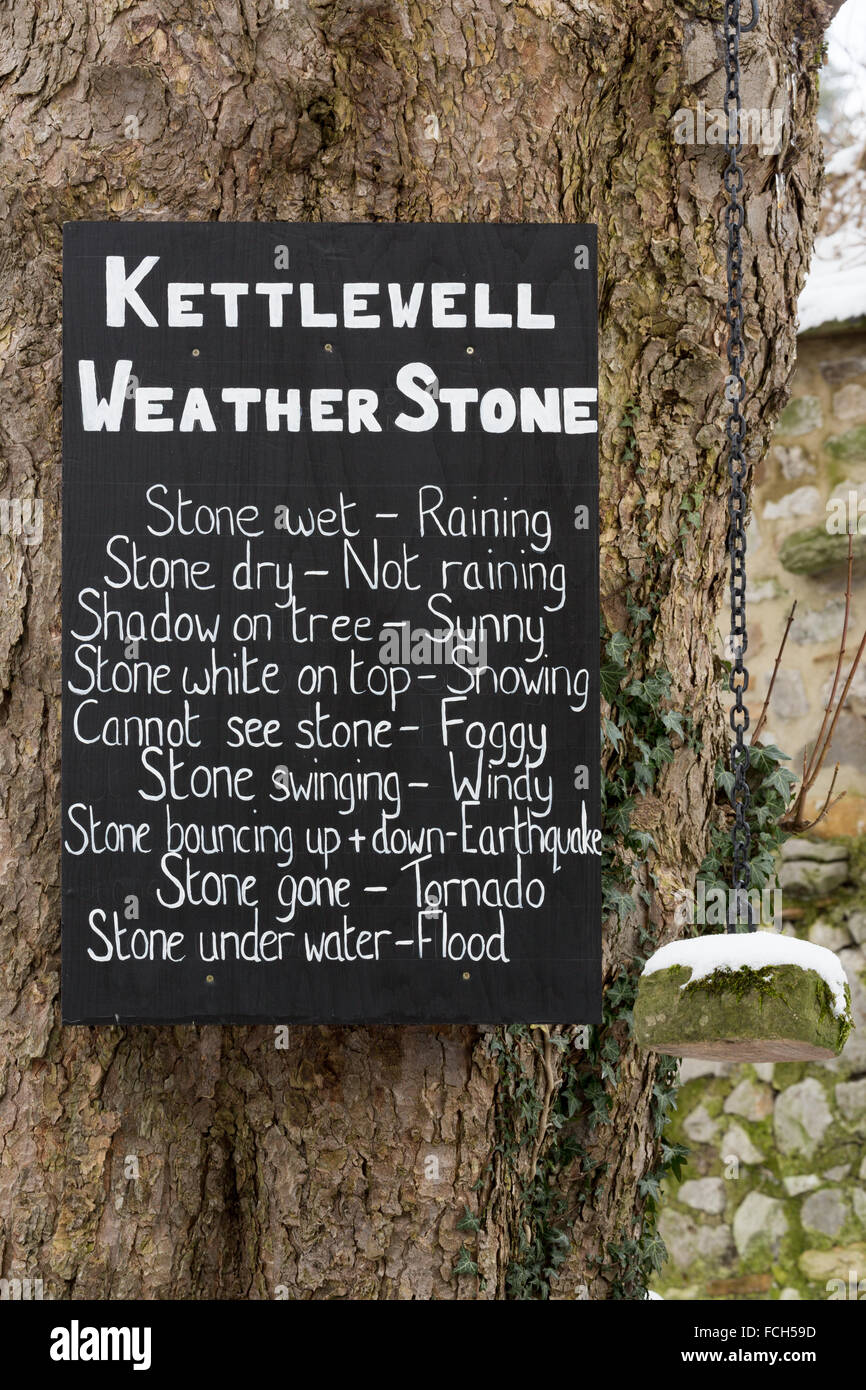 KETTLEWELL
WEATHER STONE
Stone wet – Raining
Stone dry – Not raining
Shadow on tree – Sunny
Stone white on top – Snowing
Cannot see stone – Foggy
Stone swinging – Windy
Stone bouncing up + down – Earthquake
Stone gone – Tornado
Stone under water – Flood
alamy
alamy stock photo
FCH59D
www.alamy.com